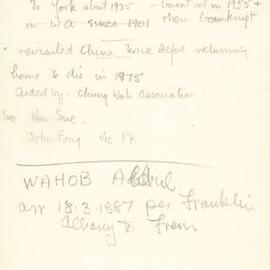 To York about 1925 - burnt out in 1955 +
in WA since 1901 then bankrupt
revisited China twice before returning
home to die in 1975
aided by Chung Wah association.
See Ken Sue
John Fong Vic Pk.
WAHOB Abdul
arr 18.3.1887 per Franklin
Albany to Frem